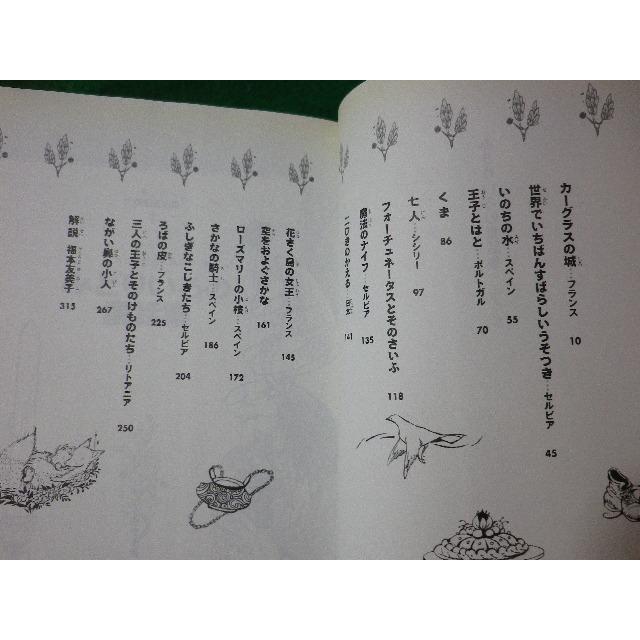 カーグラスの城…フランス 10
世界でいちばんすばらしいうそつき…セルビア 45
いのちの水…スペイン 55
王子とはと…ポルトガル 70
くま 86
七人…シシリー 97
フォーチュネータスとそのさいふ 118
魔法のナイフ…セルビア 135
二ひきのかえる 日本 141
花さく島の女王…フランス 145
空をおよぐさかな 161
ローズマリーの小枝…スペイン 172
さかなの騎士…スペイン 186
ふしぎなこじきたち…セルビア 204
ろばの皮…フランス 225
三人の王子とそのけものたち…リトアニア 250
ながい鼻の小人 267
解説 福本友美子 315